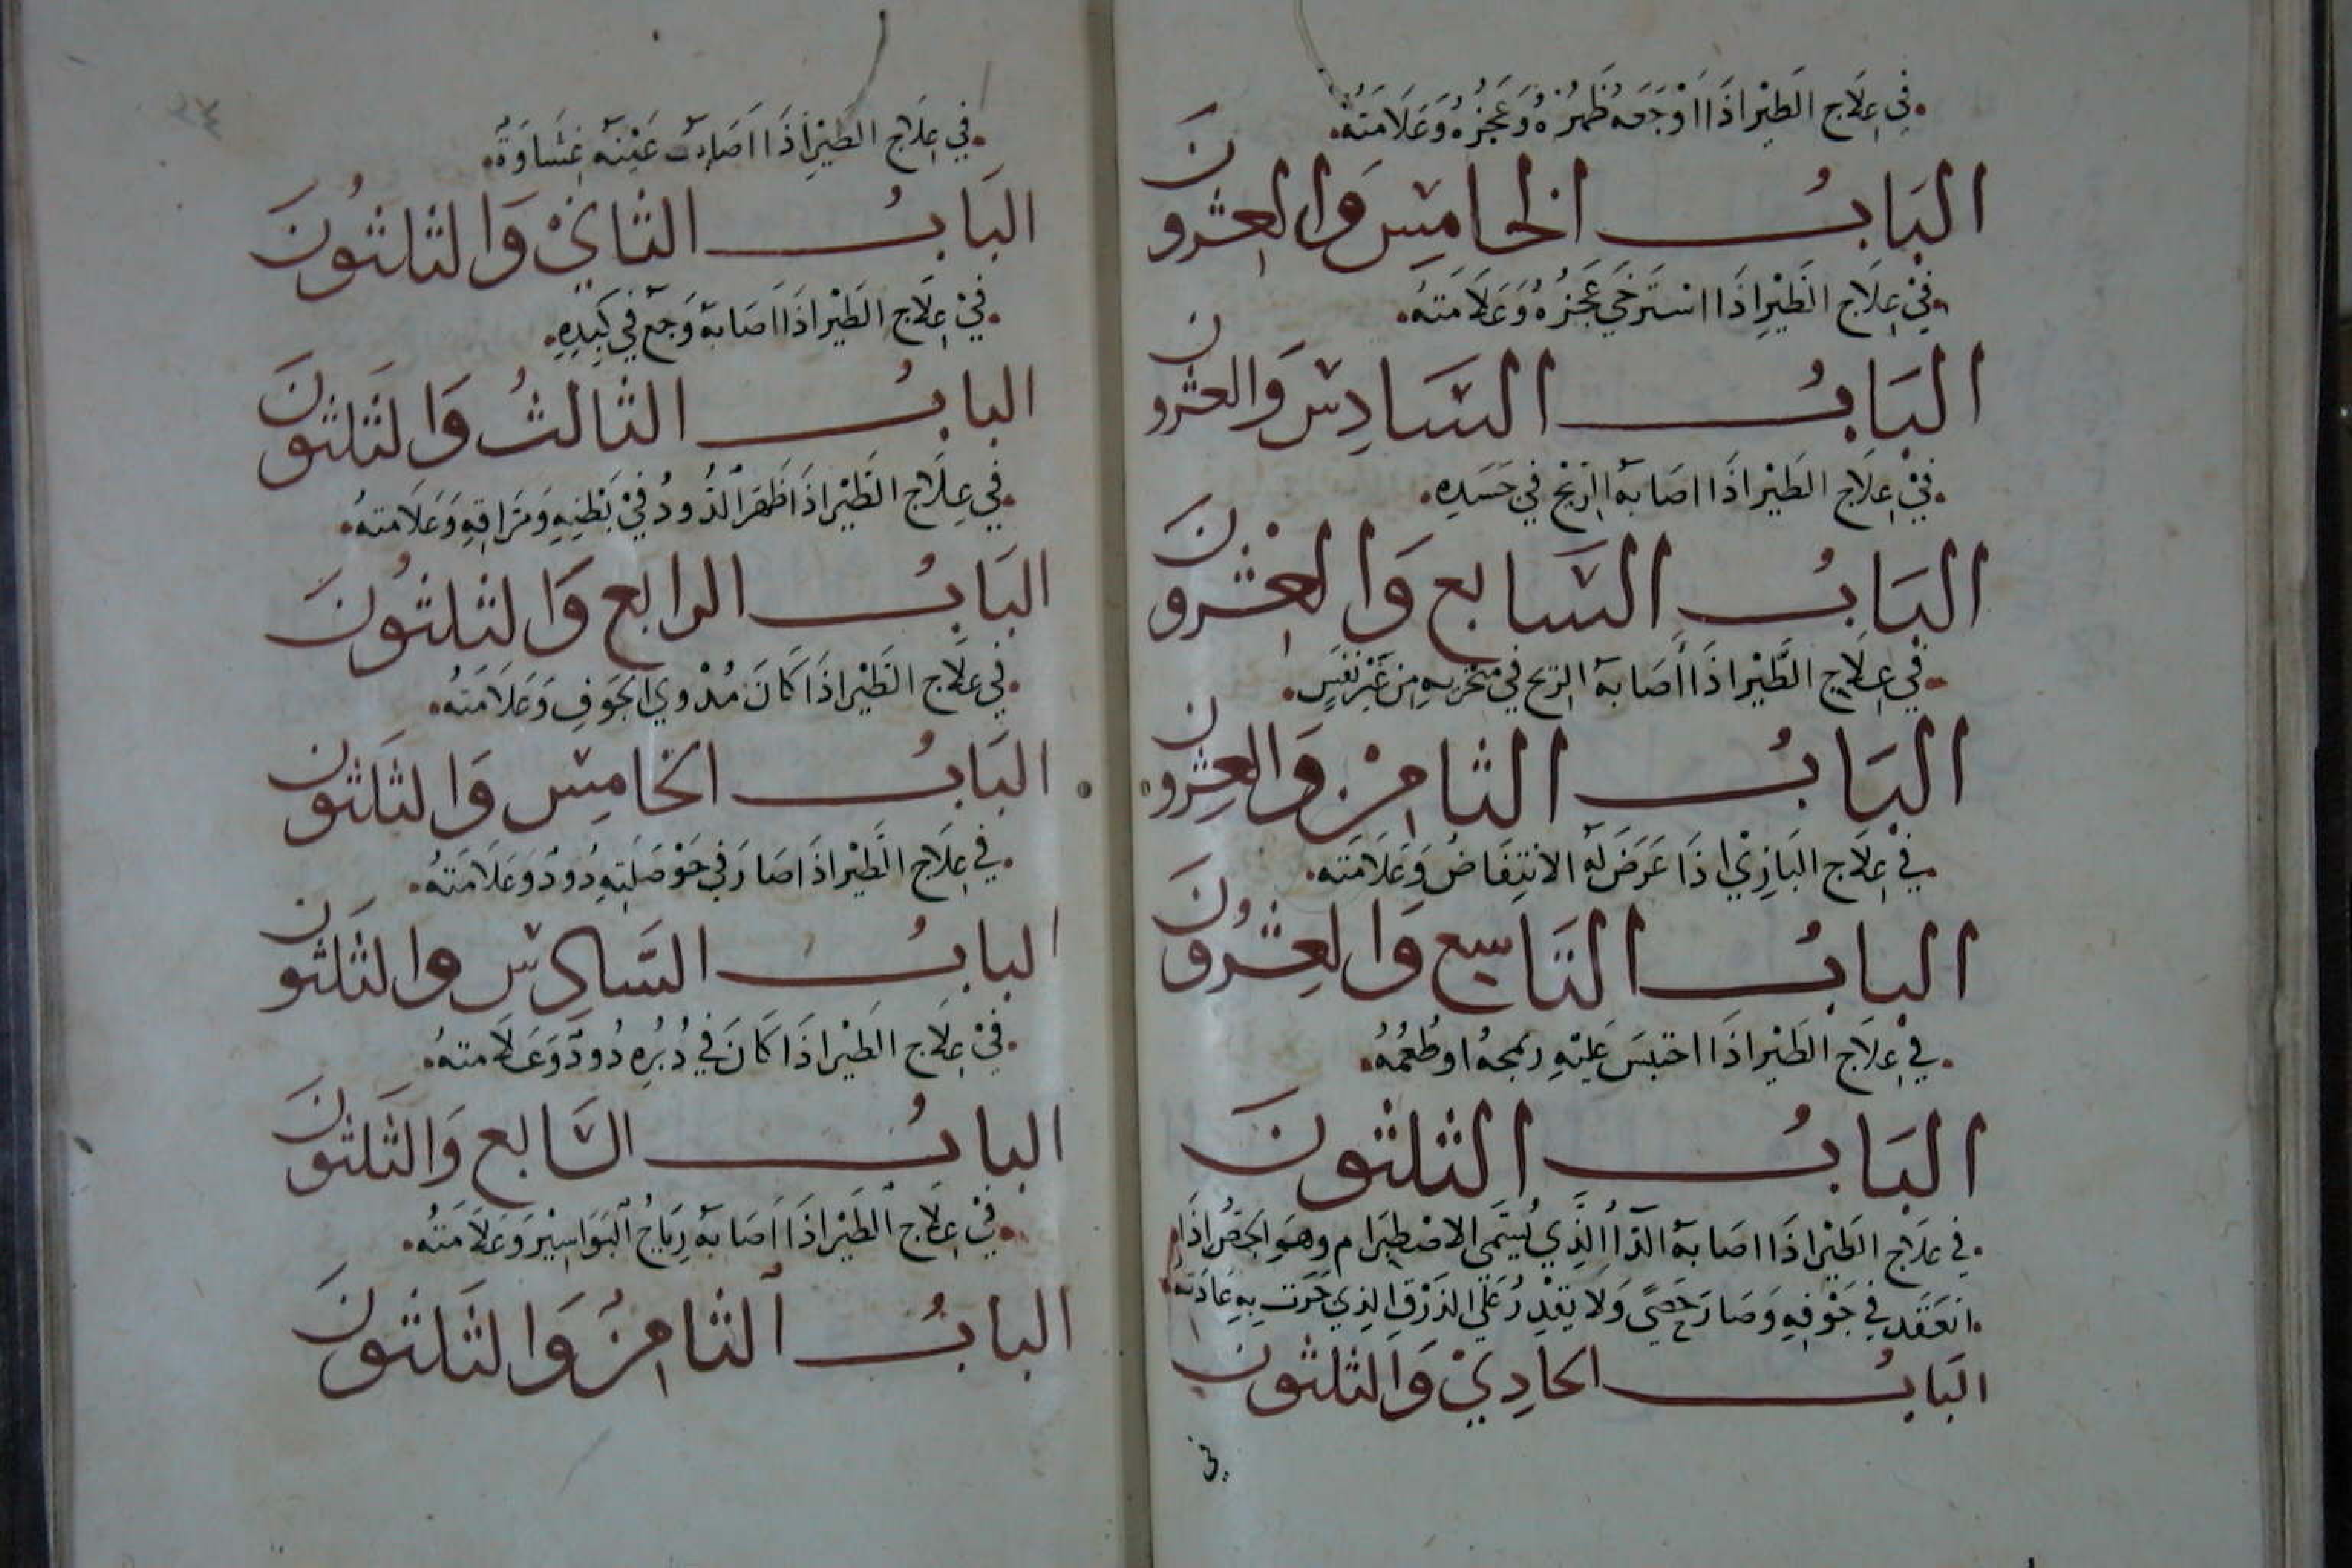 في عِلَاج الطَيْر اذَا اَوْجَعَهُ ظَهْرُهُ وَعَجُزُهُ وَعَلَامَتُهُ
البَابُ الخامِس وَالعِشرونَ
فيْ عِلَاج الطَيْرِ اذَا اسْتَرخَي عَجُزُهُ وَعَلَامَتهُ
البَابُ السَادِس وَالعشرون
فيْ عِلَاج الطَيْر اذَا اصَابهُ الرّيْح في جَسَدِهِ
البَابُ السَّابع وَالعِشْرونَ
في عِلَاج الطَّيْر اذَا اَصَابهُ الريح في مَنْخريهِ مِن غَيْر نَفَسٍ
البَابُ الثامِنْ وَالعِشرون
فيْ عِلَاج البَازِيْ اذَا عَرَضَ لَهُ الانتِفَاضُ وَعَلَامَته
البابُ التَاسِع وَالعِشْرُونَ
في عِلَاج الطَيْر اذَا احتبَسَ عَليْهِ رمجهُ او طُعْمُهُ
البَابُ الثلثونَ
في عِلَاج الطَيْر اذَا اصَابهُ الدَّاُ الَّذِي يُسَمَّى الاضطِرَام وهوَ الحَصَرُ اذَا
انعَقَد في جَوْفِهِ وَصَارَ حَصًي وَلا يقْدِرُ عَلَي الذَرْقِ الذِي جَرَت بِهِ عَادَتهُ
البَابُ الحادِيْ وَالثلثون
في
في عِلَاج الطَيْرِ اذَا اَصَابت عَيْنهُ غِشَاوَةٌ
البَابُ الثانيْ وَالثلثُونَ
فيْ عِلَاج الطَيْر اذَا اَصَابهُ وَجَع في كَبِدِهِ
البابُ الثالثُ وَالثَلثونَ
في عِلَاج الطَيْر اذَا ظَهَرَ الدُّودُ فيْ بَطْنِهِ وَمَرَاقِهِ وَعَلَامتهُ
البَابُ الرابع وَالثلثُونَ
في عِلَاج الطَيْر اذَا كَانَ مُدْوِي الجَوفِ وَعَلَامَتهُ
البَابُ الخامِس وَالثلَثون
في عِلَاج الطَيْر اذَا صَارَ في حَوْصَلَتِهِ دُودٌ وَعَلَامَتهُ
البابُ السَّادِس وَالثَلثون
فيْ عِلَاج الطَيْر اذَا كَانَ في دُبُرِهِ دُودٌ وَعَلَامتهُ
البابُ السَّابع وَالثَلثونَ
فيْ عِلَاج الطَيْر اذَا اَصَابهُ رِيَاحُ البَوَاسِيْر وَعَلَامَتهُ
البابُ الثامِنُ وَالثَلثونَ